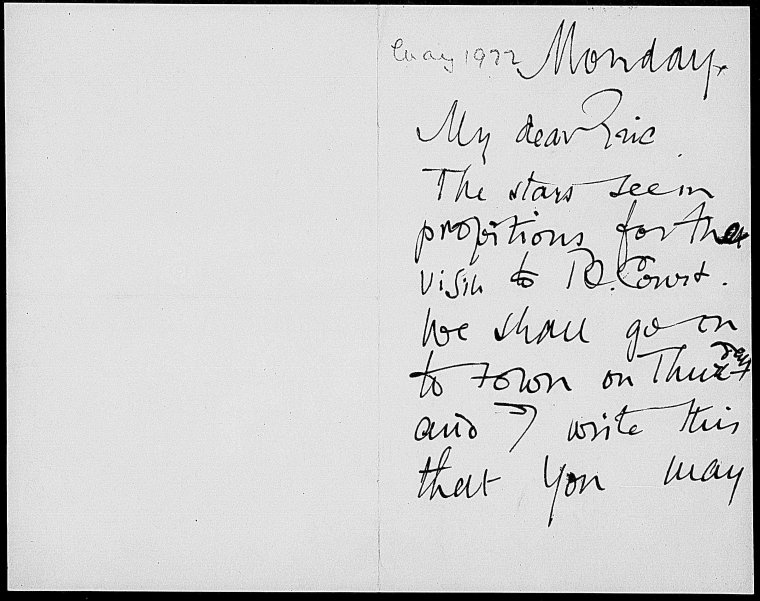 May 1922 Monday.
My dear Eric
The stars seem
propitious for the
visit to R. Court.
We shall go on
to town on Thursday
and I write this
that you may